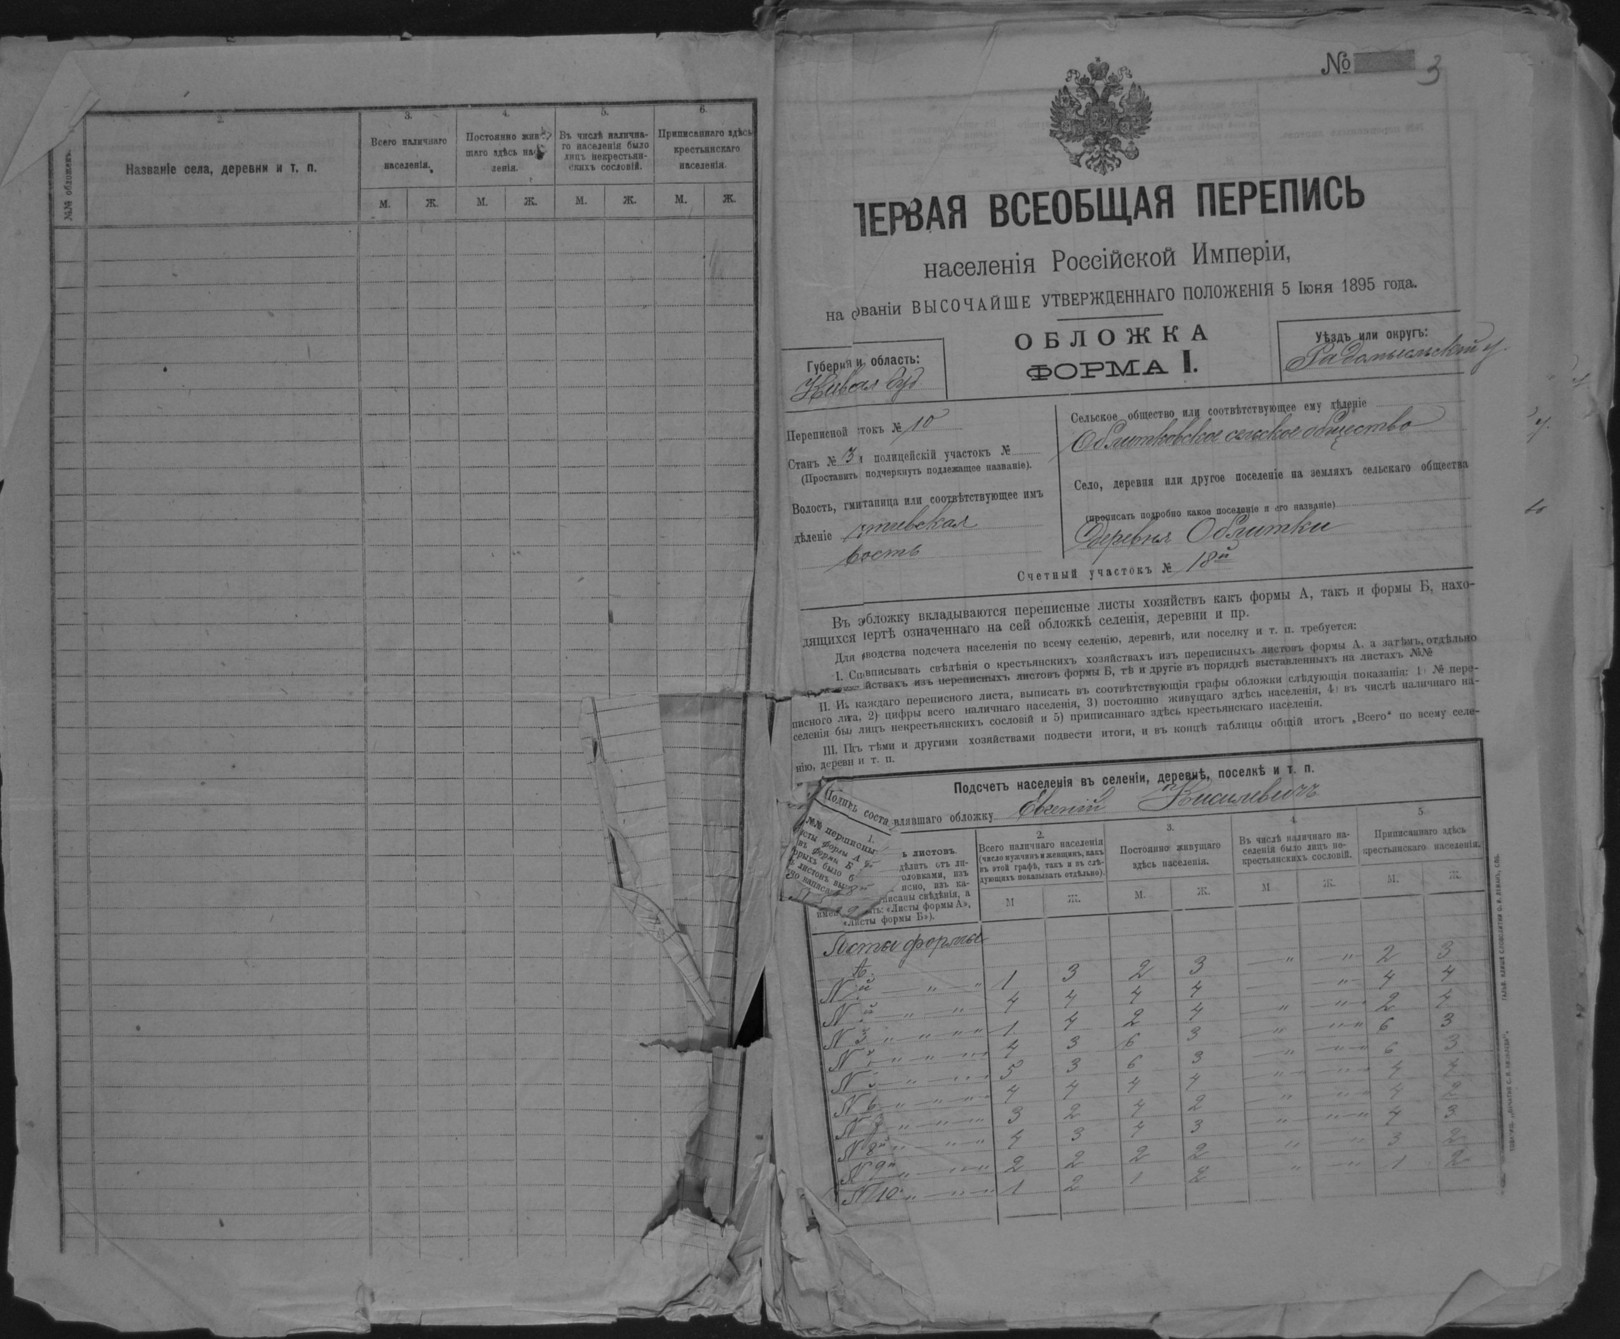 №№ обложекъ.
2.
Названіе села, деревни и т. п.
3.
Всего наличнаго
населенія.
4.
Постоянно жив
шаго здѣсь на
ленія.
5.
Въ числѣ налична-
го населенія было
лицъ некрестьян-
скихъ сословій.
6.
Приписаннаго здѣсь
крестьянскаго
населенія.
М. Ж. М. Ж. М. Ж. М. Ж.
№ 3
ПЕРВАЯ ВСЕОБЩАЯ ПЕРЕПИСЬ
населенія Россійской Имперіи,
на ованіи ВЫСОЧАЙШЕ УТВЕРЖДЕННАГО ПОЛОЖЕНІЯ 5 Іюня 1895 года.
ОБЛОЖКА
ФОРМА I.
Губерния и, область:
Уѣздъ или округъ:
Радомысльскій у.
Переписной токъ № 10
Станъ № 3 полицейскій участокъ №
(Проставить подчеркнуть подлежащее названіе).
Волость, гмитаница или соотвѣтствующее имъ
дѣленіе
Сельское общество или соотвѣтствующее ему дѣленіе
Облитковское сельское общество
Село, деревня или другое поселеніе на земляхъ сельскаго общества
(прописать подробно какое поселеніе и его названіе)
Деревня Облитки
Счетный участокъ № 18й
Въ обложку вкладываются переписные листы хозяйствъ какъ формы А, такъ и формы Б, нахо-
дящихся чертѣ означеннаго на сей обложкѣ селенія, деревни и пр.
Для водства подсчета населенія по всему селенію, деревнѣ, или поселку и т. п. требуется:
I. Сп вписывать свѣдѣнія о крестьянскихъ хозяйствахъ изъ переписныхъ листовъ формы А. а затѣмъ, отдѣльно
йствахъ изъ переписныхъ листовъ формы Б, тѣ и другіе въ порядкѣ выставленныхъ на листахъ №№
II. Из каждаго переписного листа, выписать въ соотвѣтствующія графы обложки слѣдующія показанія: 1) № пере-
писного листа, 2) цифры всего наличнаго населенія, 3) постоянно живущаго здѣсь населенія, 4) въ числѣ наличнаго на-
селенія был лицъ некрестьянскихъ сословій и 5) приписаннаго здѣсь крестьянскаго населенія.
III. По тѣми и другими хозяйствами подвести итоги, и въ концѣ таблицы общій итогъ „Всего" по всему селе-
нію, деревни и т. п.
Подсчетъ населенія въ селеніи, деревнѣ, поселкѣ и т. п.
Подпись составлявшаго обложку Евгеній Киселевичъ
1.
№№ переписны
ь листовъ.
2.
Всего наличнаго населенія
(число мужчинъ и женщинъ, какъ
въ этой графѣ, такъ и въ слѣ-
дующихъ показывать отдѣльно).
3.
Постоянно живущаго
здѣсь населенія.
4.
Въ числѣ наличнаго на-
селенія было лицъ не-
крестьянскихъ сословій.
5
Приписаннаго здѣсь
крестьянскаго населенія.
ть: «Листы формы А»,
«Листы формы Б»).
М Ж. М. Ж. М Ж. М. Ж.
Листы формы
А.
N й " " 1 3 2 3 " " 2 3
N й " " 4 4 4 4 " " 4 4
N 3 " " 1 4 2 4 " " 2 4
N " " 4 3 6 3 " " 6 3
N " " 5 3 6 3 " " 6 3
N 6 " " 4 4 4 4 " " 4 4
N " " 3 2 4 2 " " 4 2
N 8й " " 4 3 4 3 " " 4 3
N 9й " " 2 2 2 2 " " 3 2
N 10 " " 1 2 1 2 " " 1 2